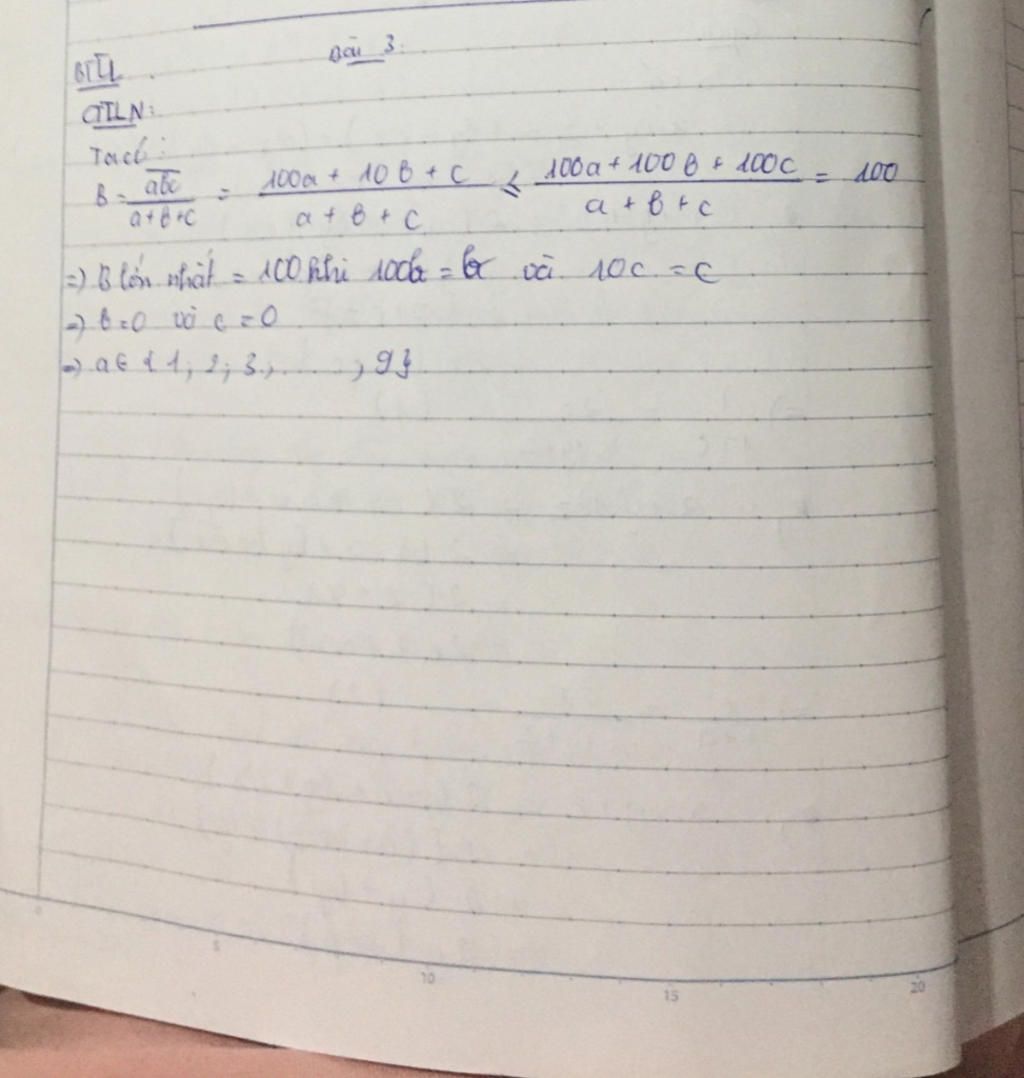 Bài 3:
BTLL
GTLN:
Ta có:
B = \overline{abc} / (a+b+c) = (100a + 10b + c) / (a + b + c) ≤ (100a + 100b + 100c) / (a + b + c) = 100
=) B lớn nhất = 100 khi 100b = b và 10c = c
=) b=0 và c = 0
=) a ∈ { 1; 2; 3; ....., 9}
5
10
15
20